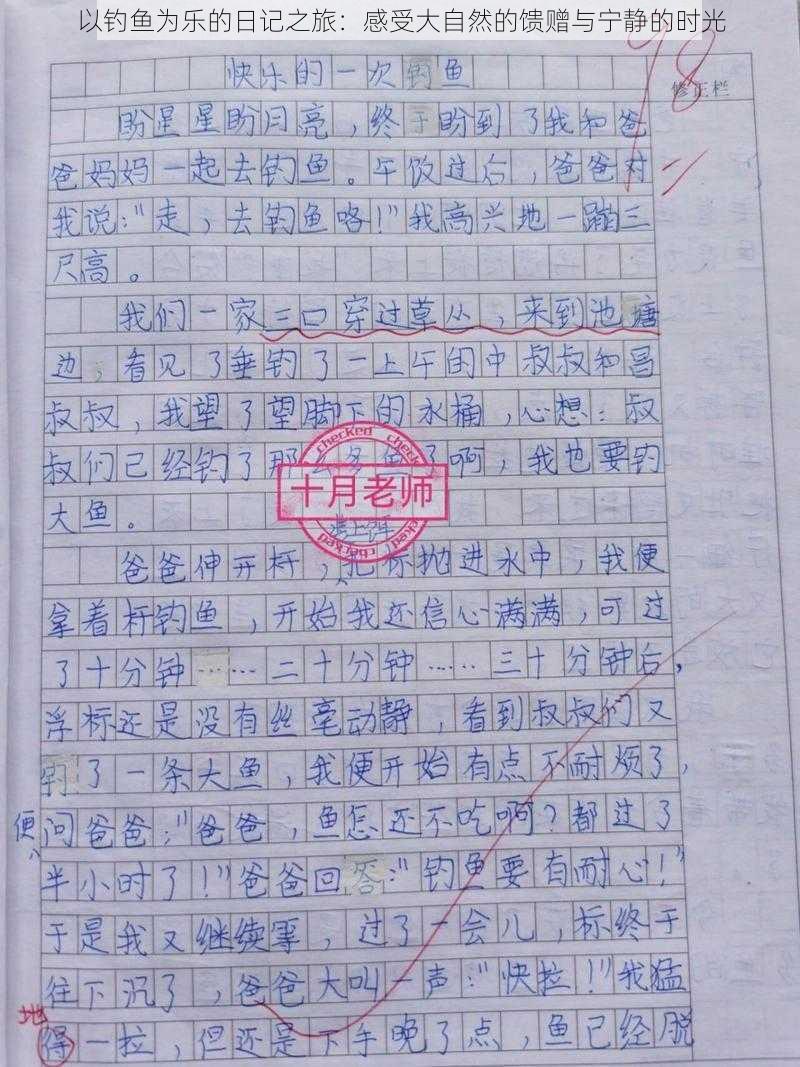 以钓鱼为乐的日记之旅：感受大自然的馈赠与宁静的时光
快乐的一次钓鱼
98
修正栏
盼星星盼月亮，终于盼到了我和爸
爸妈妈一起去钓鱼。午饭过后，爸爸对
我说："走，去钓鱼咯！"我高兴地一蹦三
尺高。
我们一家三口穿过草丛，来到池塘
边，看见了垂钓了一上午的中叔叔和昌
叔叔，我望了望脚下的水桶，心想：叔
叔们已经钓了那么多鱼了啊，我也要钓
大鱼。
checked checked
十月老师
checked checked
爸爸伸开杆，把标抛进水中，我便
拿着杆钓鱼，开始我还信心满满，可过
了十分钟……二十分钟……三十分钟后，
浮标还是没有丝毫动静，看到叔叔们又
钓了一条大鱼，我便开始有点不耐烦了，
便问爸爸："爸爸，鱼怎还不吃啊？都过了
半小时了！"爸爸回答："钓鱼要有耐心！"
于是我又继续等，过了一会儿，标终于
往下沉了，爸爸大叫一声："快拉！"我猛
地
得一拉，但还是下手晚了点，鱼已经脱